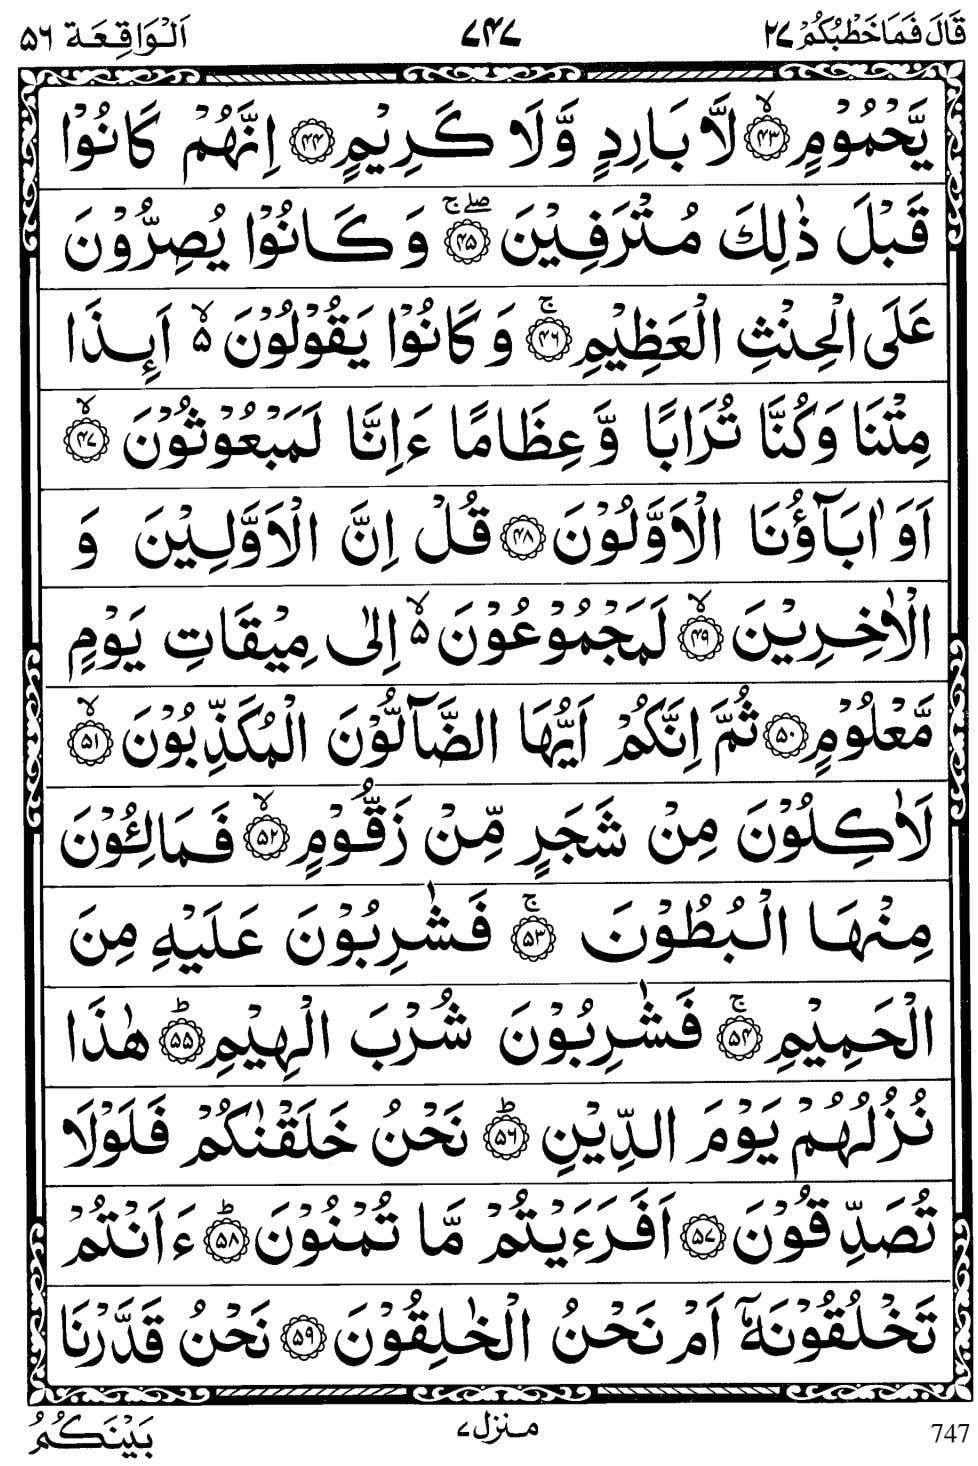 قَالَ فَمَا خَطْبُكُمْ ٢٧ ٧٤٧ اَلْوَاقِعَة ٥٦
يَّحْمُوْمٍ ﴿٤٣﴾ۙ لَّا بَارِدٍ وَّلَا كَرِيْمٍ ﴿٤٤﴾ اِنَّهُمْ كَانُوْا
قَبْلَ ذٰلِكَ مُتْرَفِيْنَ ﴿٤٥﴾ۖۚ وَكَانُوْا يُصِرُّوْنَ
عَلَى الْحِنْثِ الْعَظِيْمِ ﴿٤٦﴾ۚ وَكَانُوْا يَقُوْلُوْنَ ۙ۬ اَىِٕذَا
مِتْنَا وَكُنَّا تُرَابًا وَّعِظَامًا ءَاِنَّا لَمَبْعُوْثُوْنَ ﴿٤٧﴾ۙ
اَوَ اٰبَآؤُنَا الْاَوَّلُوْنَ ﴿٤٨﴾ قُلْ اِنَّ الْاَوَّلِيْنَ وَ
الْاٰخِرِيْنَ ﴿٤٩﴾ۙ لَمَجْمُوْعُوْنَ ۙ۬ اِلٰى مِيْقَاتِ يَوْمٍ
مَّعْلُوْمٍ ﴿٥٠﴾ ثُمَّ اِنَّكُمْ اَيُّهَا الضَّآلُّوْنَ الْمُكَذِّبُوْنَ ﴿٥١﴾ۙ
لَاٰكِلُوْنَ مِنْ شَجَرٍ مِّنْ زَقُّوْمٍ ﴿٥٢﴾ۙ فَمَالِـُٔوْنَ
مِنْهَا الْبُطُوْنَ ﴿٥٣﴾ۚ فَشٰرِبُوْنَ عَلَيْهِ مِنَ
الْحَمِيْمِ ﴿٥٤﴾ۚ فَشٰرِبُوْنَ شُرْبَ الْهِيْمِ ﴿٥٥﴾ؕ هٰذَا
نُزُلُهُمْ يَوْمَ الدِّيْنِ ﴿٥٦﴾ؕ نَحْنُ خَلَقْنٰكُمْ فَلَوْلَا
تُصَدِّقُوْنَ ﴿٥٧﴾ اَفَرَءَيْتُمْ مَّا تُمْنُوْنَ ﴿٥٨﴾ؕ ءَاَنْتُمْ
تَخْلُقُوْنَهٗٓ اَمْ نَحْنُ الْخٰلِقُوْنَ ﴿٥٩﴾ نَحْنُ قَدَّرْنَا
747 منزل ٧ بَيْنَكُمُ